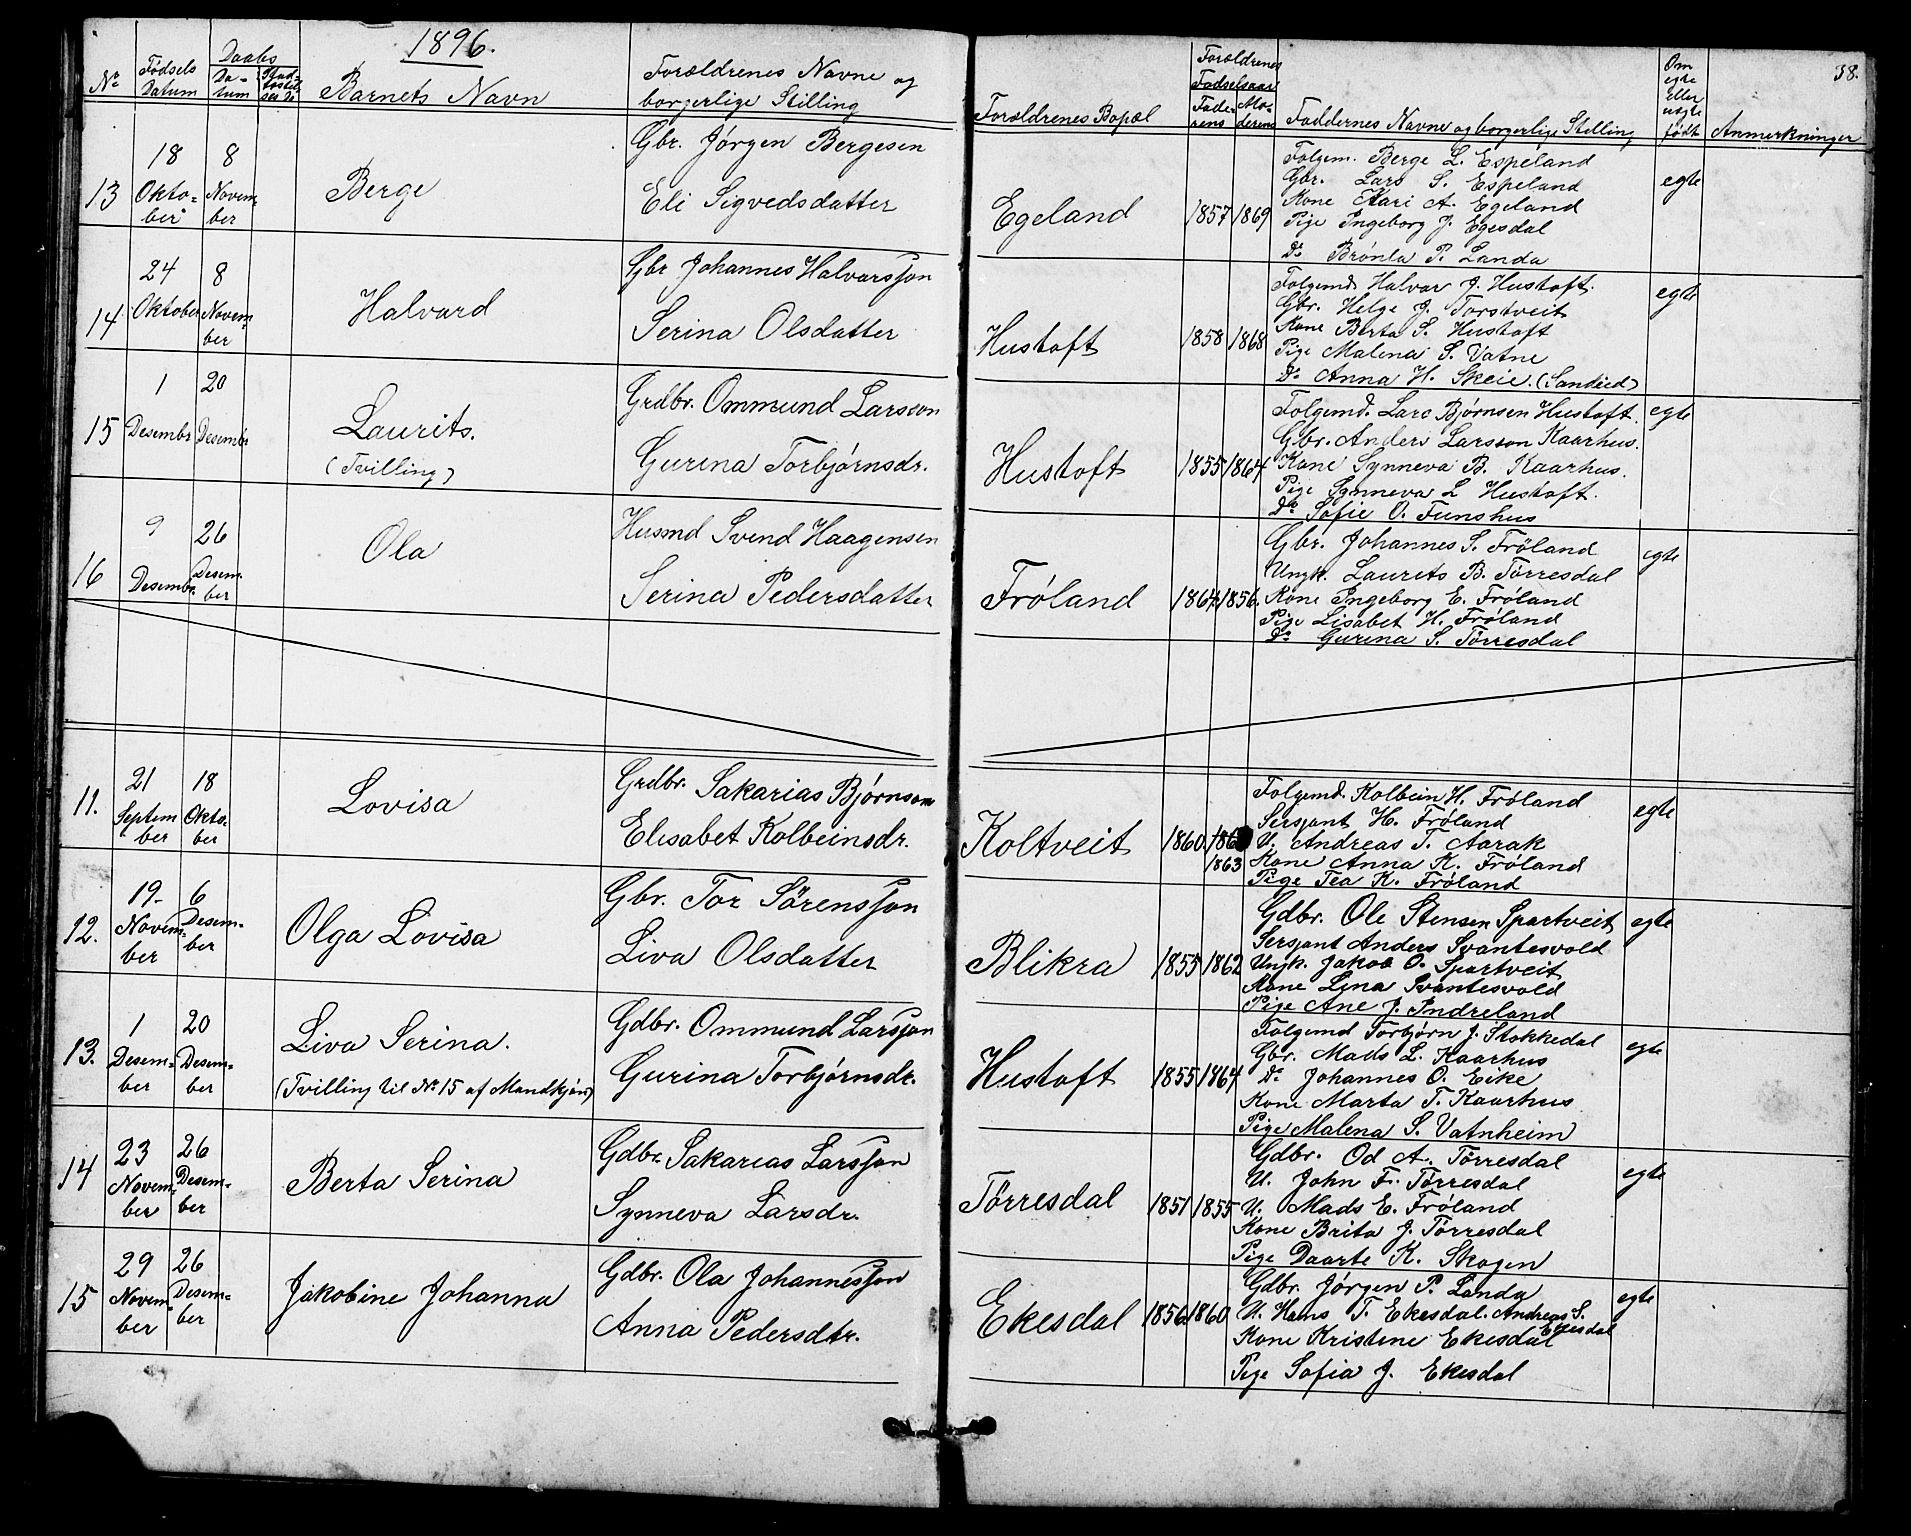 1896.
38.
Nr.
Fødsels Datum
Daabs
Da-tum
Barnets Navn
Forældrenes Navne og
borgerlige Stilling
Forældrenes Bopæl
Forældrenes
Fødselsaar
Fade-rens
Mo-derens
Faddernes Navne og borgerlige Stilling
Om egte eller uegte født
Anmerkninger
13
18 Okto-ber
8 Novem-ber
Berge
Gbr. Jørgen Bergesen
Eli Sigvedsdatter
Egeland
1857
1869
Folgem. Berge L. Espeland
Gbr. Lars S. Espeland
Kone Kari A. Egeland
Pije Ingeborg J. Egesdal
Do Brønla P. Landa
egte
14
24 Oktober
8 Novem-ber
Halvard
Gbr Johannes Halvarsson
Serina Olsdatter
Hustoft
1858
1868
Folgemd Halvar J. Hustoft.
Gbr. Helge J. Torstveit
Kone Berta S. Hustoft
Pige Malena S. Vatne
Do Anna H. Skeie. (Sandeid)
egte
15
1 Desembr
20 Desembr
Laurits.
(Tvilling)
Grdbr. Ommund Larsson
Gurina Torbjørnsdr.
Hustoft
1855
1864
Folgemd. Lars Bjørnsen Hustoft.
Gbr. Anders Larsson Kaarhus.
Kone Synneva B. Kaarhus.
Pige Synneva L Hustoft.
Do Sofie O. Funshus
egte
16
9 Desembr
26 Desem-ber
Ola
Husmd Svend Haagensen
Serina Pedersdatter
Frøland
1864
1856.
Gbr. Johannes S. Frøland
Ungk. Laurits B. Tørresdal
Kone Ingeborg E. Frøland
Pige Lisabet H. Frøland
Do Gurina S. Tørresdal
egte
11.
21 Septem-ber
18 Okto-ber
Lovisa
Grdbr. Sakarias Bjørnson
Elisabet Kolbeinsdr.
Koltveit
1860
1863
Folgemd. Kolbein H. Frøland
Sersjant H. Frøland
U. Andreas T. Aarak
Kone Anna K. Frøland
Pige Tea K. Frøland
egte
12.
19. Novem-ber
6 Desem-ber
Olga Lovisa
Gbr. Tor Sørensson
Liva Olsdatter
Blikra
1855
1862
Gdbr. Ole Stensen Spartveit
Sersjant Anders Svantesvold
Ungk. Jakob O. Spartveit
Kone Lina Svantesvold
Pige Ane J. Indreland
egte
13.
1 Desem-ber
20 Desem-ber
Liva Serina.
(Tvilling til Nr 15 af Mandkjøn)
Gdbr. Ommund Larsson
Gurina Torbjørnsdr.
Hustoft
1855
1864
Folgemd Torbjørn J. Stokkedal
Gbr. Mads L. Kaarhus
Do Johannes O. Eike
Kone Marta T. Kaarhus
Pige Malena S. Vatnheim
egte
14
23 Novem-ber
26 Desem-ber
Berta Serina
Gdbr. Sakarias Larsson
Synneva Larsdr.
Tørresdal
1851
1855
Gdbr. Od A. Tørresdal
U. John F. Tørresdal
U. Mads E. Frøland
Kone Brita J. Tørresdal
Pige Daarte K. Skogen
egte
15
29 Novem-ber
26 Desem-ber
Jakobine Johanna
Gdbr. Ola Johannesson
Anna Pedersdtr.
Ekesdal
1856
1860
Gdbr. Jørgen P. Landa
U. Hans T. Ekesdal. Andreas S. Ekesdal
Kone Kristine Ekesdal
Pige Sofia J. Ekesdal
egte